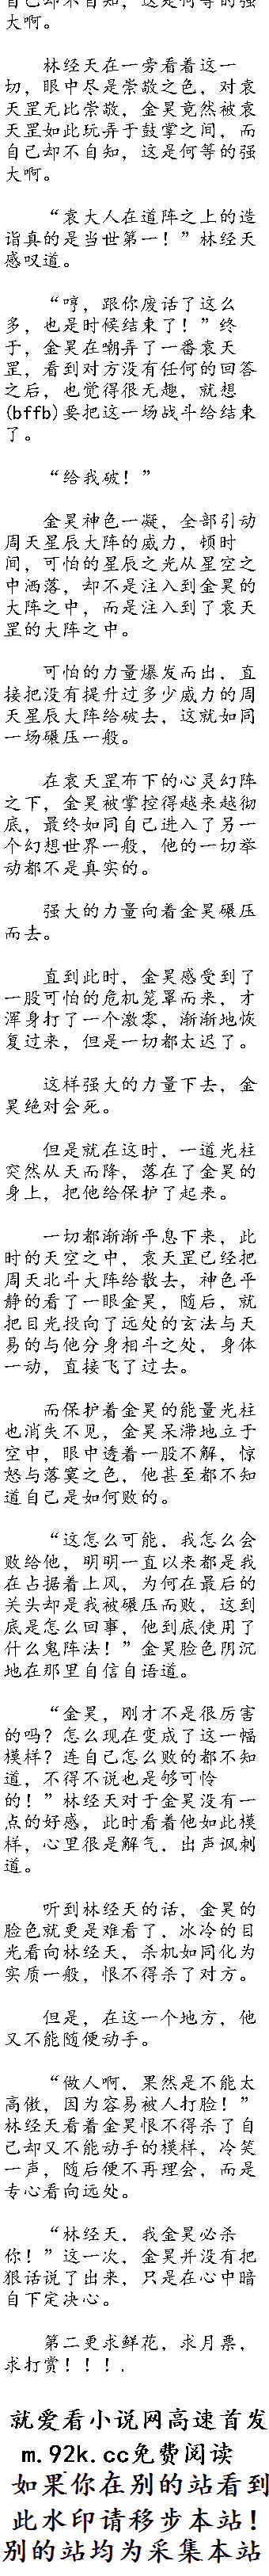 自己却不自知，这是何等的强
大啊。
林经天在一旁看着这一
切，眼中尽是崇敬之色，对袁
天罡无比崇敬，金昊竟然被袁
天罡如此玩弄于鼓掌之间，而
自己却不自知，这是何等的强
大啊。
“袁大人在道阵之上的造
诣真的是当世第一！”林经天
感叹道。
“哼，跟你废话了这么
多，也是时候结束了！”终
于，金昊在嘲弄了一番袁天
罡，看到对方没有任何的回答
之后，也觉得很无趣，就想
(bffb)要把这一场战斗给结束
了。
“给我破！”
金昊神色一凝，全部引动
周天星辰大阵的威力，顿时
间，可怕的星辰之光从星空之
中洒落，却不是注入到金昊的
大阵之中，而是注入到了袁天
罡的大阵之中。
可怕的力量爆发而出，直
接把没有提升过多少威力的周
天星辰大阵给破去，这就如同
一场碾压一般。
在袁天罡布下的心灵幻阵
之下，金昊被掌控得越来越彻
底，最终如同自己进入了另一
个幻想世界一般，他的一切举
动都不是真实的。
强大的力量向着金昊碾压
而去。
直到此时，金昊感受到了
一股可怕的危机笼罩而来，才
浑身打了一个激零，渐渐地恢
复过来，但是一切都太迟了。
这样强大的力量下去，金
昊绝对会死。
但是就在这时，一道光柱
突然从天而降，落在了金昊的
身上，把他给保护了起来。
一切都渐渐平息下来，此
时的天空之中，袁天罡已经把
周天北斗大阵给散去，神色平
静的看了一眼金昊，随后，就
把目光投向了远处的玄法与天
易的与他分身相斗之处，身体
一动，直接飞了过去。
而保护着金昊的能量光柱
也消失不见，金昊呆滞地立于
空中，眼中透着一股不解，惊
怒与落寞之色，他甚至都不知
道自己是如何败的。
“这怎么可能，我怎么会
败给他，明明一直以来都是我
在占据着上风，为何在最后的
关头却是我被碾压而败，这到
底是怎么回事，他到底使用了
什么鬼阵法！”金昊脸色阴沉
地在那里自信自语道。
“金昊，刚才不是很厉害
的吗？怎么现在变成了这一幅
模样？连自己怎么败的都不知
道，不得不说也是够可怜
的！”林经天对于金昊没有一
点的好感，此时看着他如此模
样，心里很是解气，出声讽刺
道。
听到林经天的话，金昊的
脸色就更是难看了，冰冷的目
光看向林经天，杀机如同化为
实质一般，恨不得杀了对方。
但是，在这一个地方，他
又不能随便动手。
“做人啊，果然是不能太
高傲，因为容易被人打脸！”
林经天看着金昊恨不得杀了自
己却又不能动手的模样，冷笑
一声，随后便不再理会，而是
专心看向远处。
“林经天，我金昊必杀
你！”这一次，金昊并没有把
狠话说了出来，只是在心中暗
自下定决心。
第二更求鲜花，求月票，
求打赏！！！．
就爱看小说网高速首发
m.92k.cc免费阅读
如果你在别的站看到
此水印请移步本站！
别的站均为采集本站